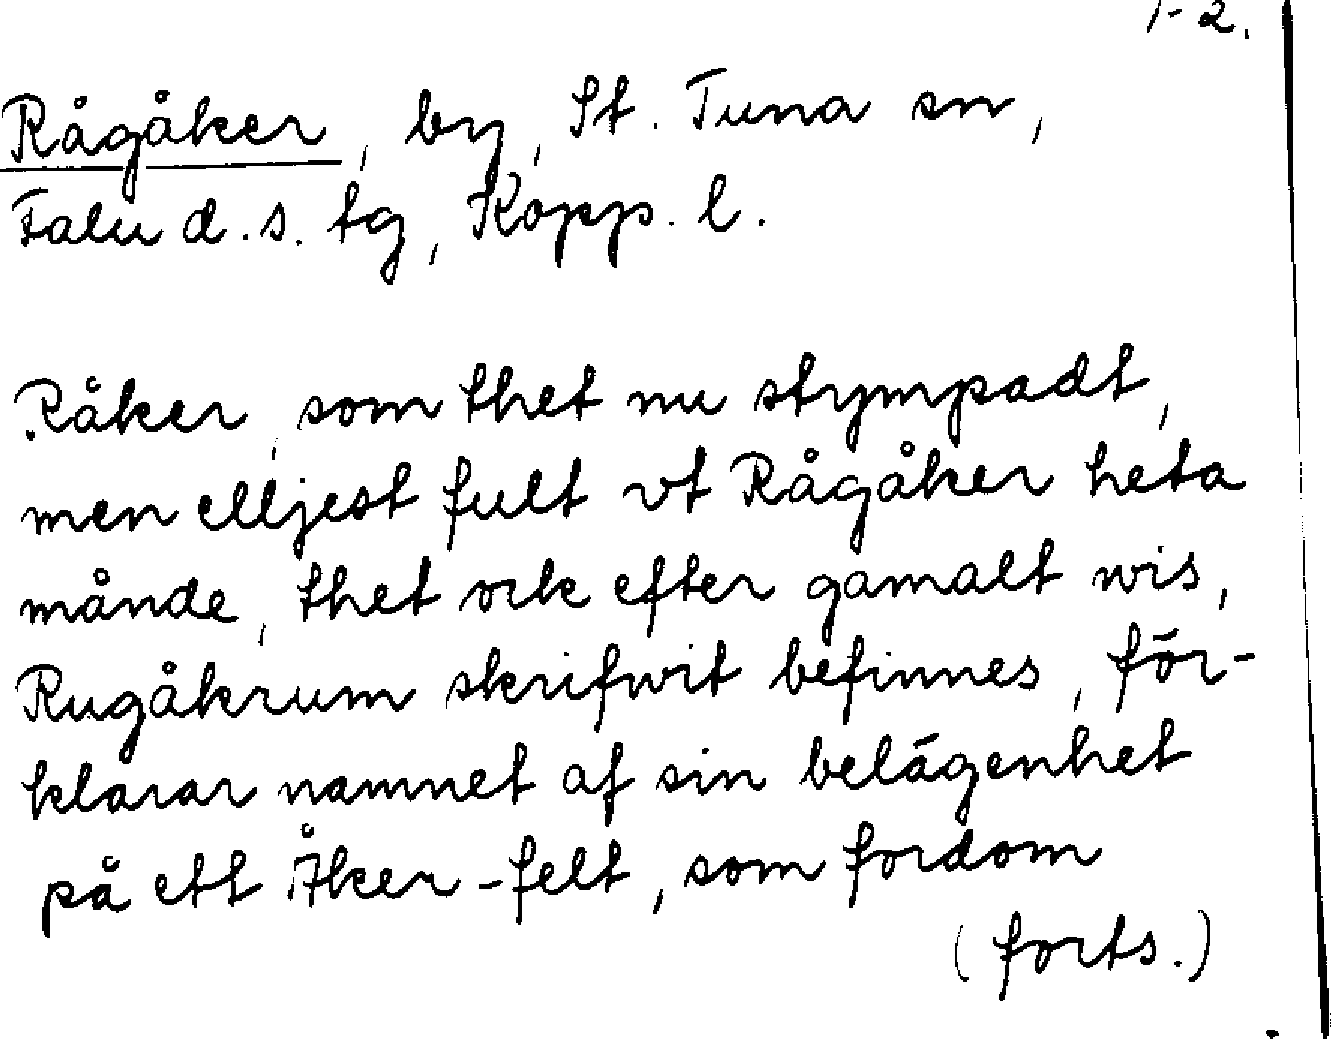 1-2.
Rågåker, by, St. Tuna sn,
Falu d.s. tg, Kopp. l.
Råker, som thet nu stympadt,
men elljest fult vt Rågåker heta
månde, thet ock efter gamalt wis,
Rugåkrum skrifwit befinnes, för-
klarar namnet af sin belägenhet
på ett Åker-felt, som fordom
(forts.)